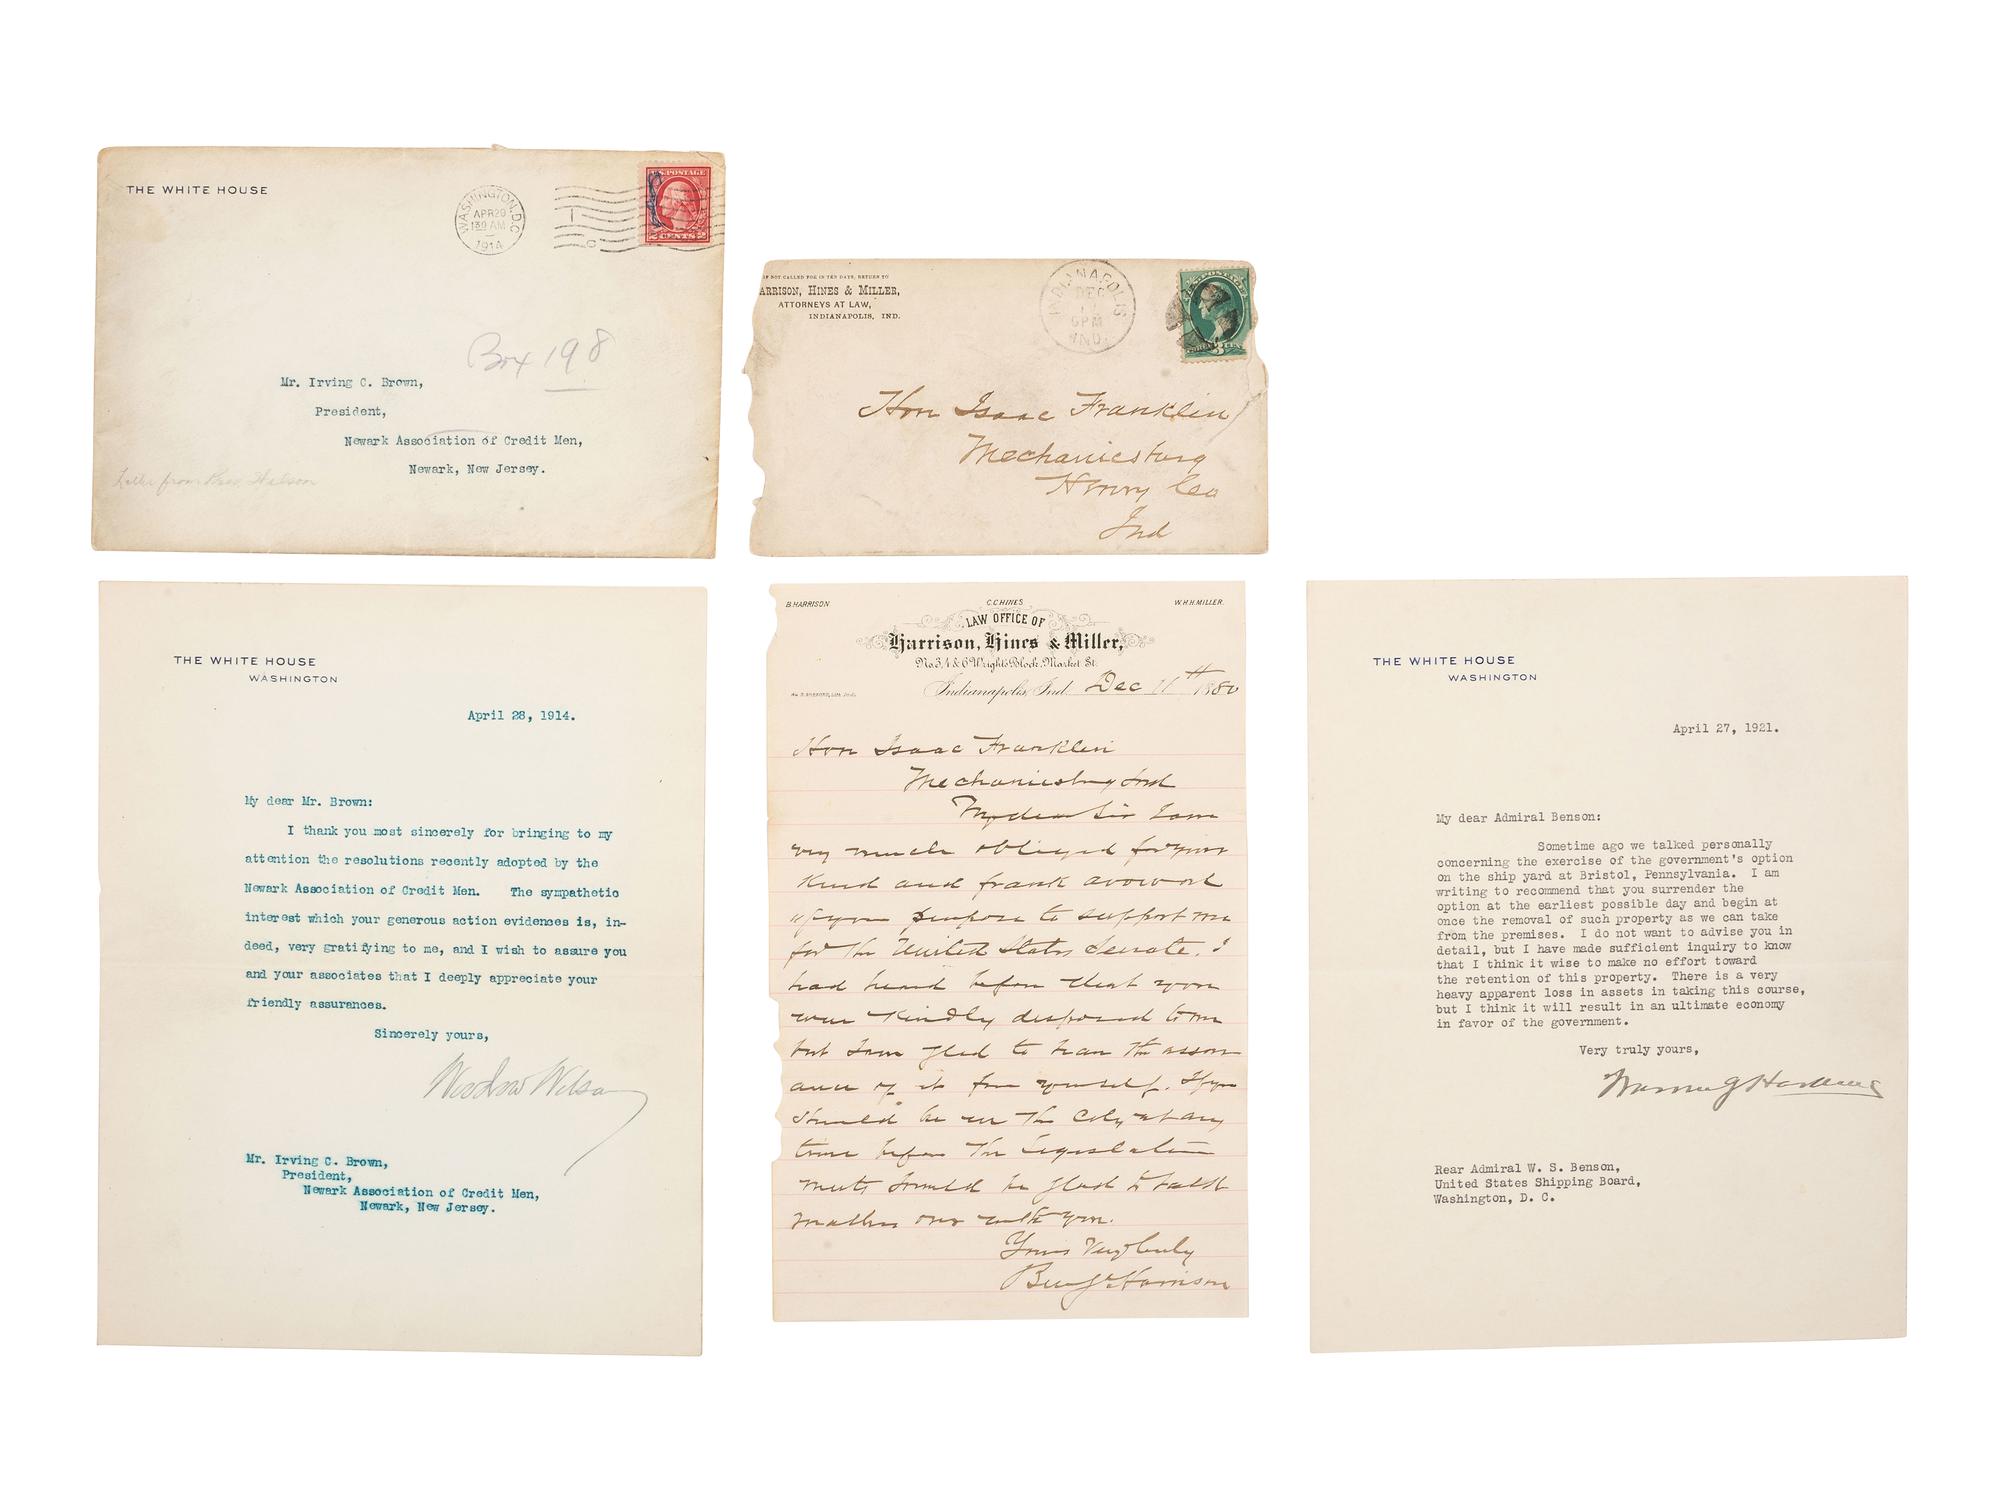 THE WHITE HOUSE
WASHINGTON, D.C.
APR 29
130 AM
1914
U.S. POSTAGE
2 CENTS 2
Box 198
Mr. Irving C. Brown,
President,
Newark Association of Credit Men,
Newark, New Jersey.
Letter from Pres. Wilson
IF NOT CALLED FOR IN TEN DAYS, RETURN TO
ARRISON, HINES & MILLER,
ATTORNEYS AT LAW,
INDIANAPOLIS, IND.
INDIANAPOLIS
DEC
6 PM
IND.
U.S. POSTAGE
3
Hon Isaac Franklin
Mechanicsburg
Henry Co
Ind
THE WHITE HOUSE
WASHINGTON
April 28, 1914.
My dear Mr. Brown:
I thank you most sincerely for bringing to my
attention the resolutions recently adopted by the
Newark Association of Credit Men. The sympathetic
interest which your generous action evidences is, in-
deed, very gratifying to me, and I wish to assure you
and your associates that I deeply appreciate your
friendly assurances.
Sincerely yours,
Woodrow Wilson
Mr. Irving C. Brown,
President,
Newark Association of Credit Men,
Newark, New Jersey.
B. HARRISON
C.C. HINES
W.H.H. MILLER.
LAW OFFICE OF
Harrison, Hines & Miller,
No. 3, 4 & 6 Wright's Block, Market St.
Indianapolis, Ind. Dec 11th 1880
Hon Isaac Franklin
Mechanicsburg Ind
My dear Sir I am
very much obliged for your
kind and frank avowal
of your purpose to support me
for the United States Senate. I
had heard before that you
were kindly disposed to me
but I am glad to have the assur
ance of it from yourself. If you
should be in the City at any
time before the Legislature
meets I would be glad to talk
matters over with you.
Yours Very truly
Benj Harrison
THE WHITE HOUSE
WASHINGTON
April 27, 1921.
My dear Admiral Benson:
Sometime ago we talked personally
concerning the exercise of the government's option
on the ship yard at Bristol, Pennsylvania. I am
writing to recommend that you surrender the
option at the earliest possible day and begin at
once the removal of such property as we can take
from the premises. I do not want to advise you in
detail, but I have made sufficient inquiry to know
that I think it wise to make no effort toward
the retention of this property. There is a very
heavy apparent loss in assets in taking this course,
but I think it will result in an ultimate economy
in favor of the government.
Very truly yours,
Warren G Harding
Rear Admiral W. S. Benson,
United States Shipping Board,
Washington, D. C.